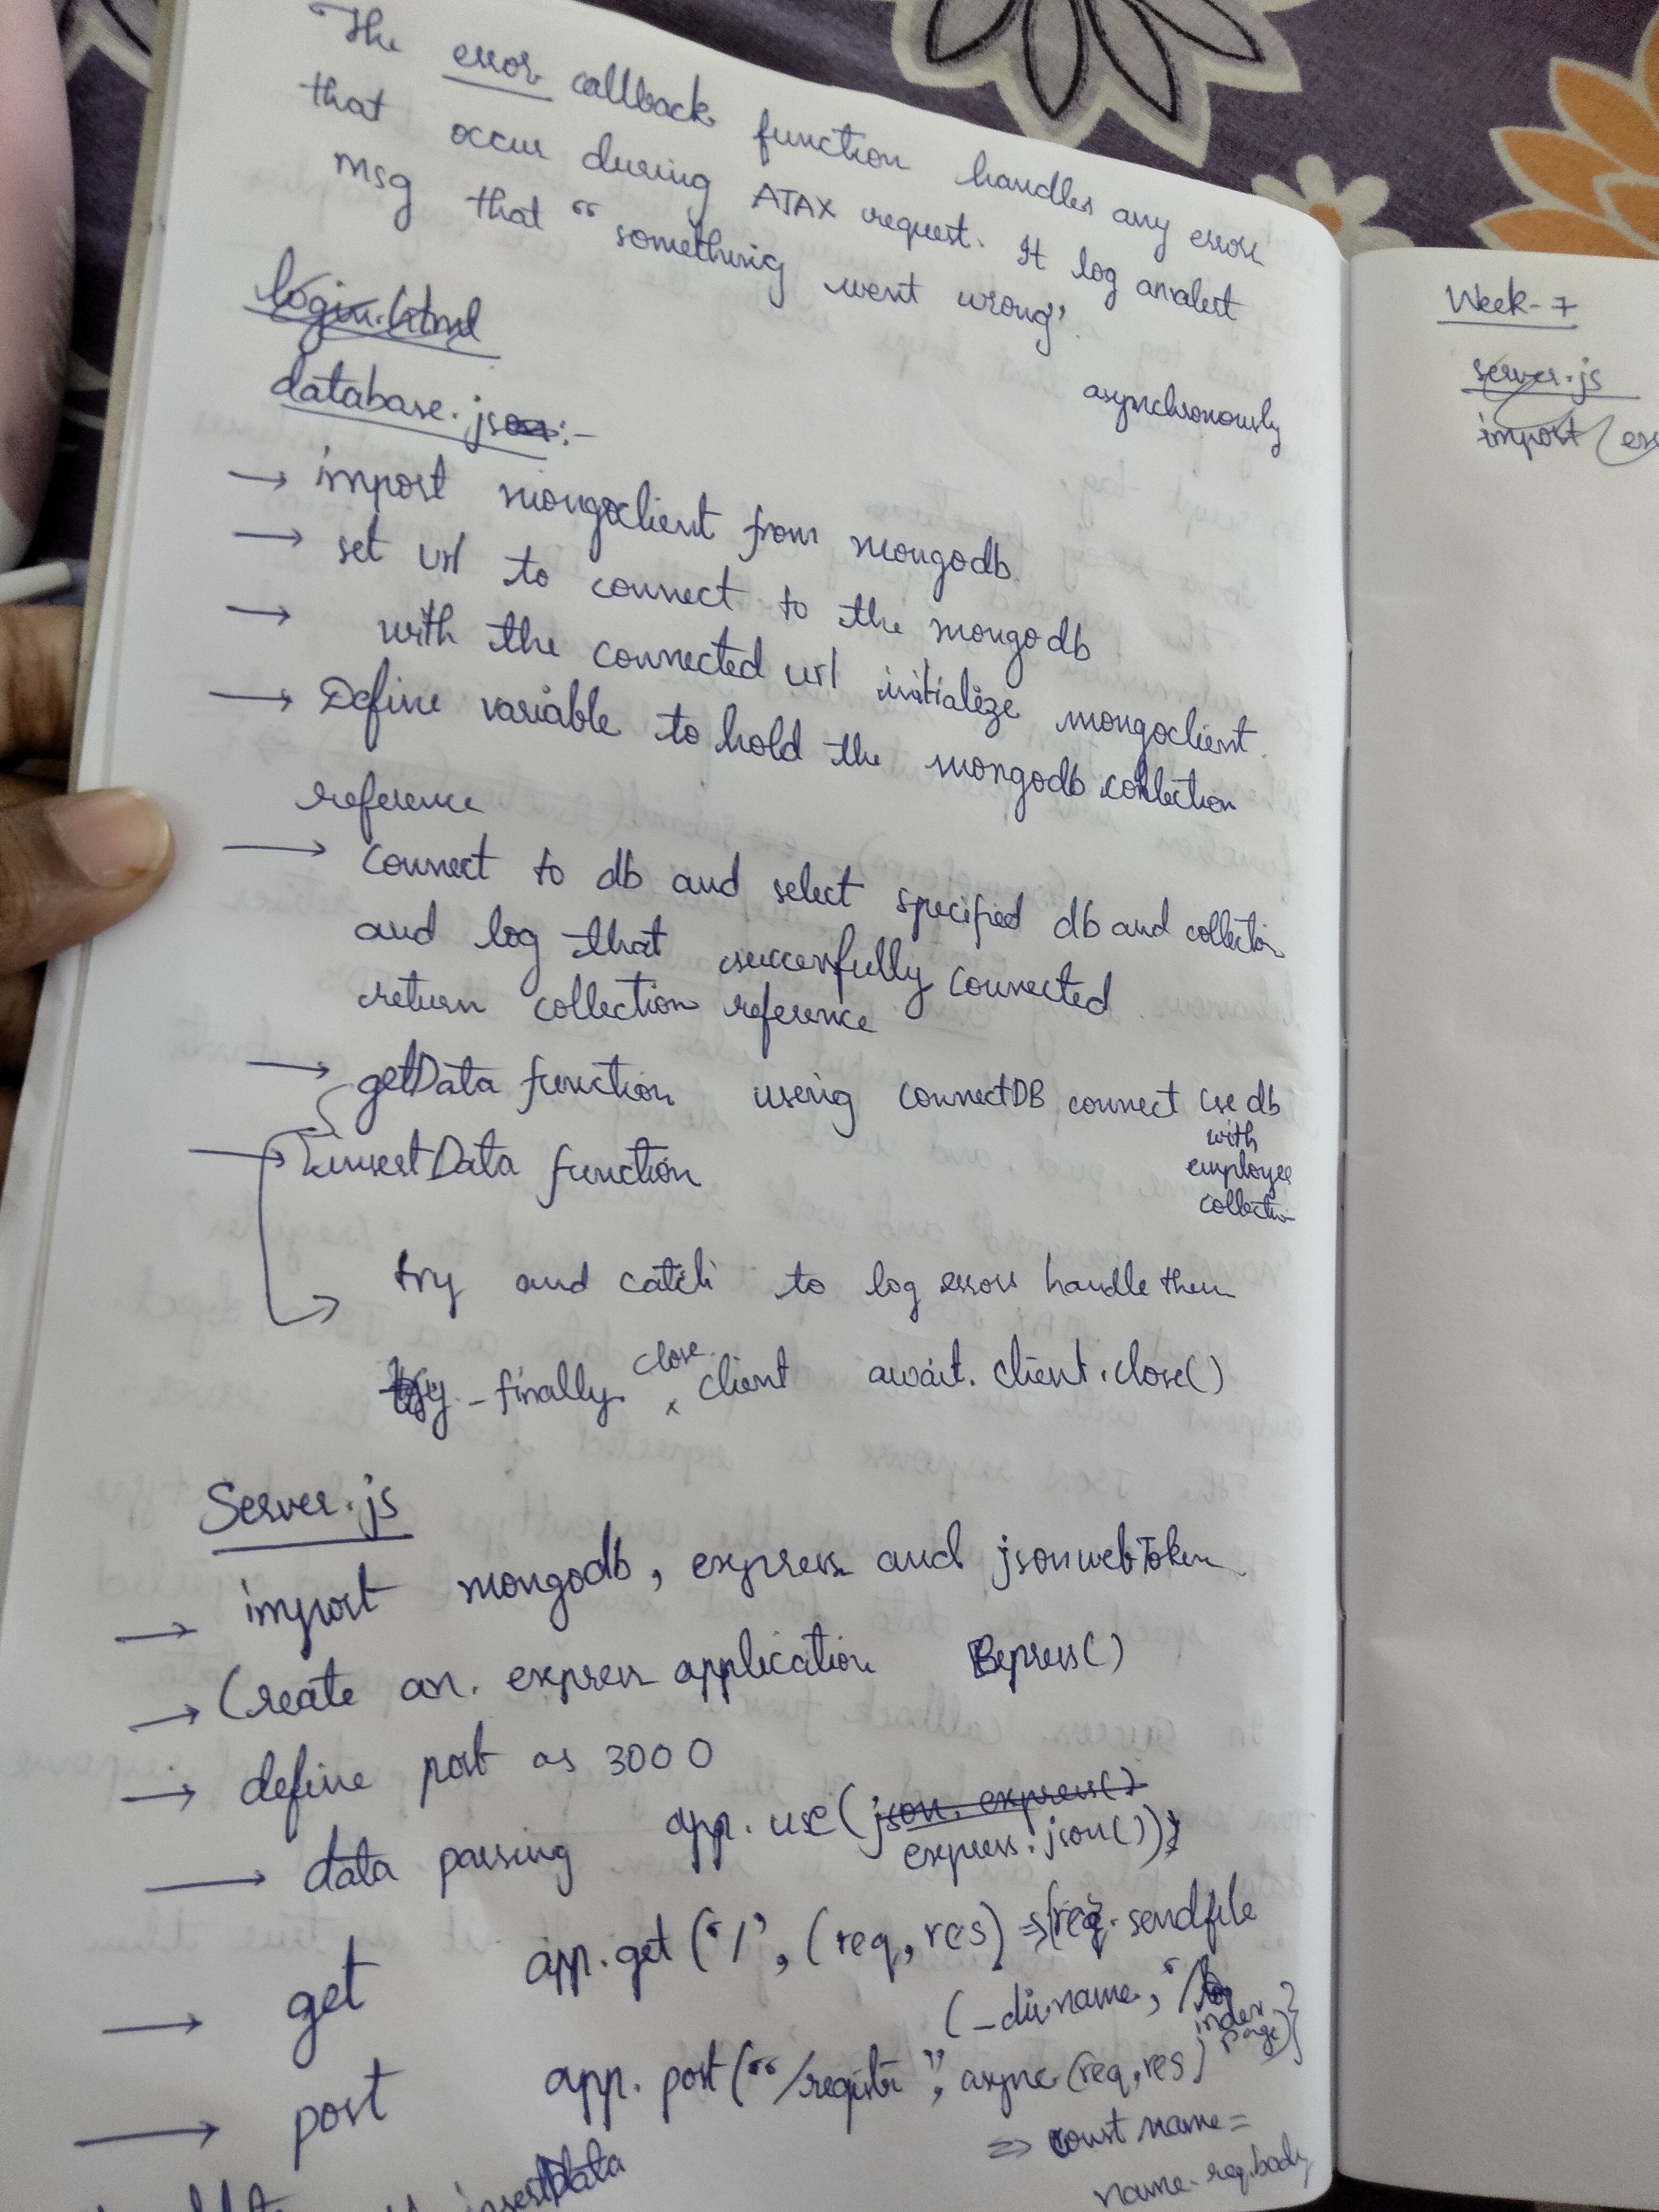 The error callback function handles any error
that occur during AJAX request. It log an alert
msg that "something went wrong".
login.html
asynchronously
database.json:-
→ import mongoclient from mongodb
→ set url to connect to the mongodb
→ with the connected url initialize mongoclient.
→ Define variable to hold the mongodb collection
reference
→ connect to db and select specified db and collection
and log that successfully connected
return collection reference
→ getData function using connectDB connect cse db
with
employee
collection
→ insertData function
try and catch to log errors handle them
finally close client await. client.close()
Server.js
→ import mongodb, express and jsonwebToken
→ Create an. express application Express()
→ define port as 3000
→ data parsing app.use(json. express()
express.json());
→ get app.get('/', (req, res) => {req. sendfile
(_dirname, '/
index
page)}
→ post app. post("/registr", async (req, res)
=> const name =
name. req.body
insertData
Week-7
server.js
import